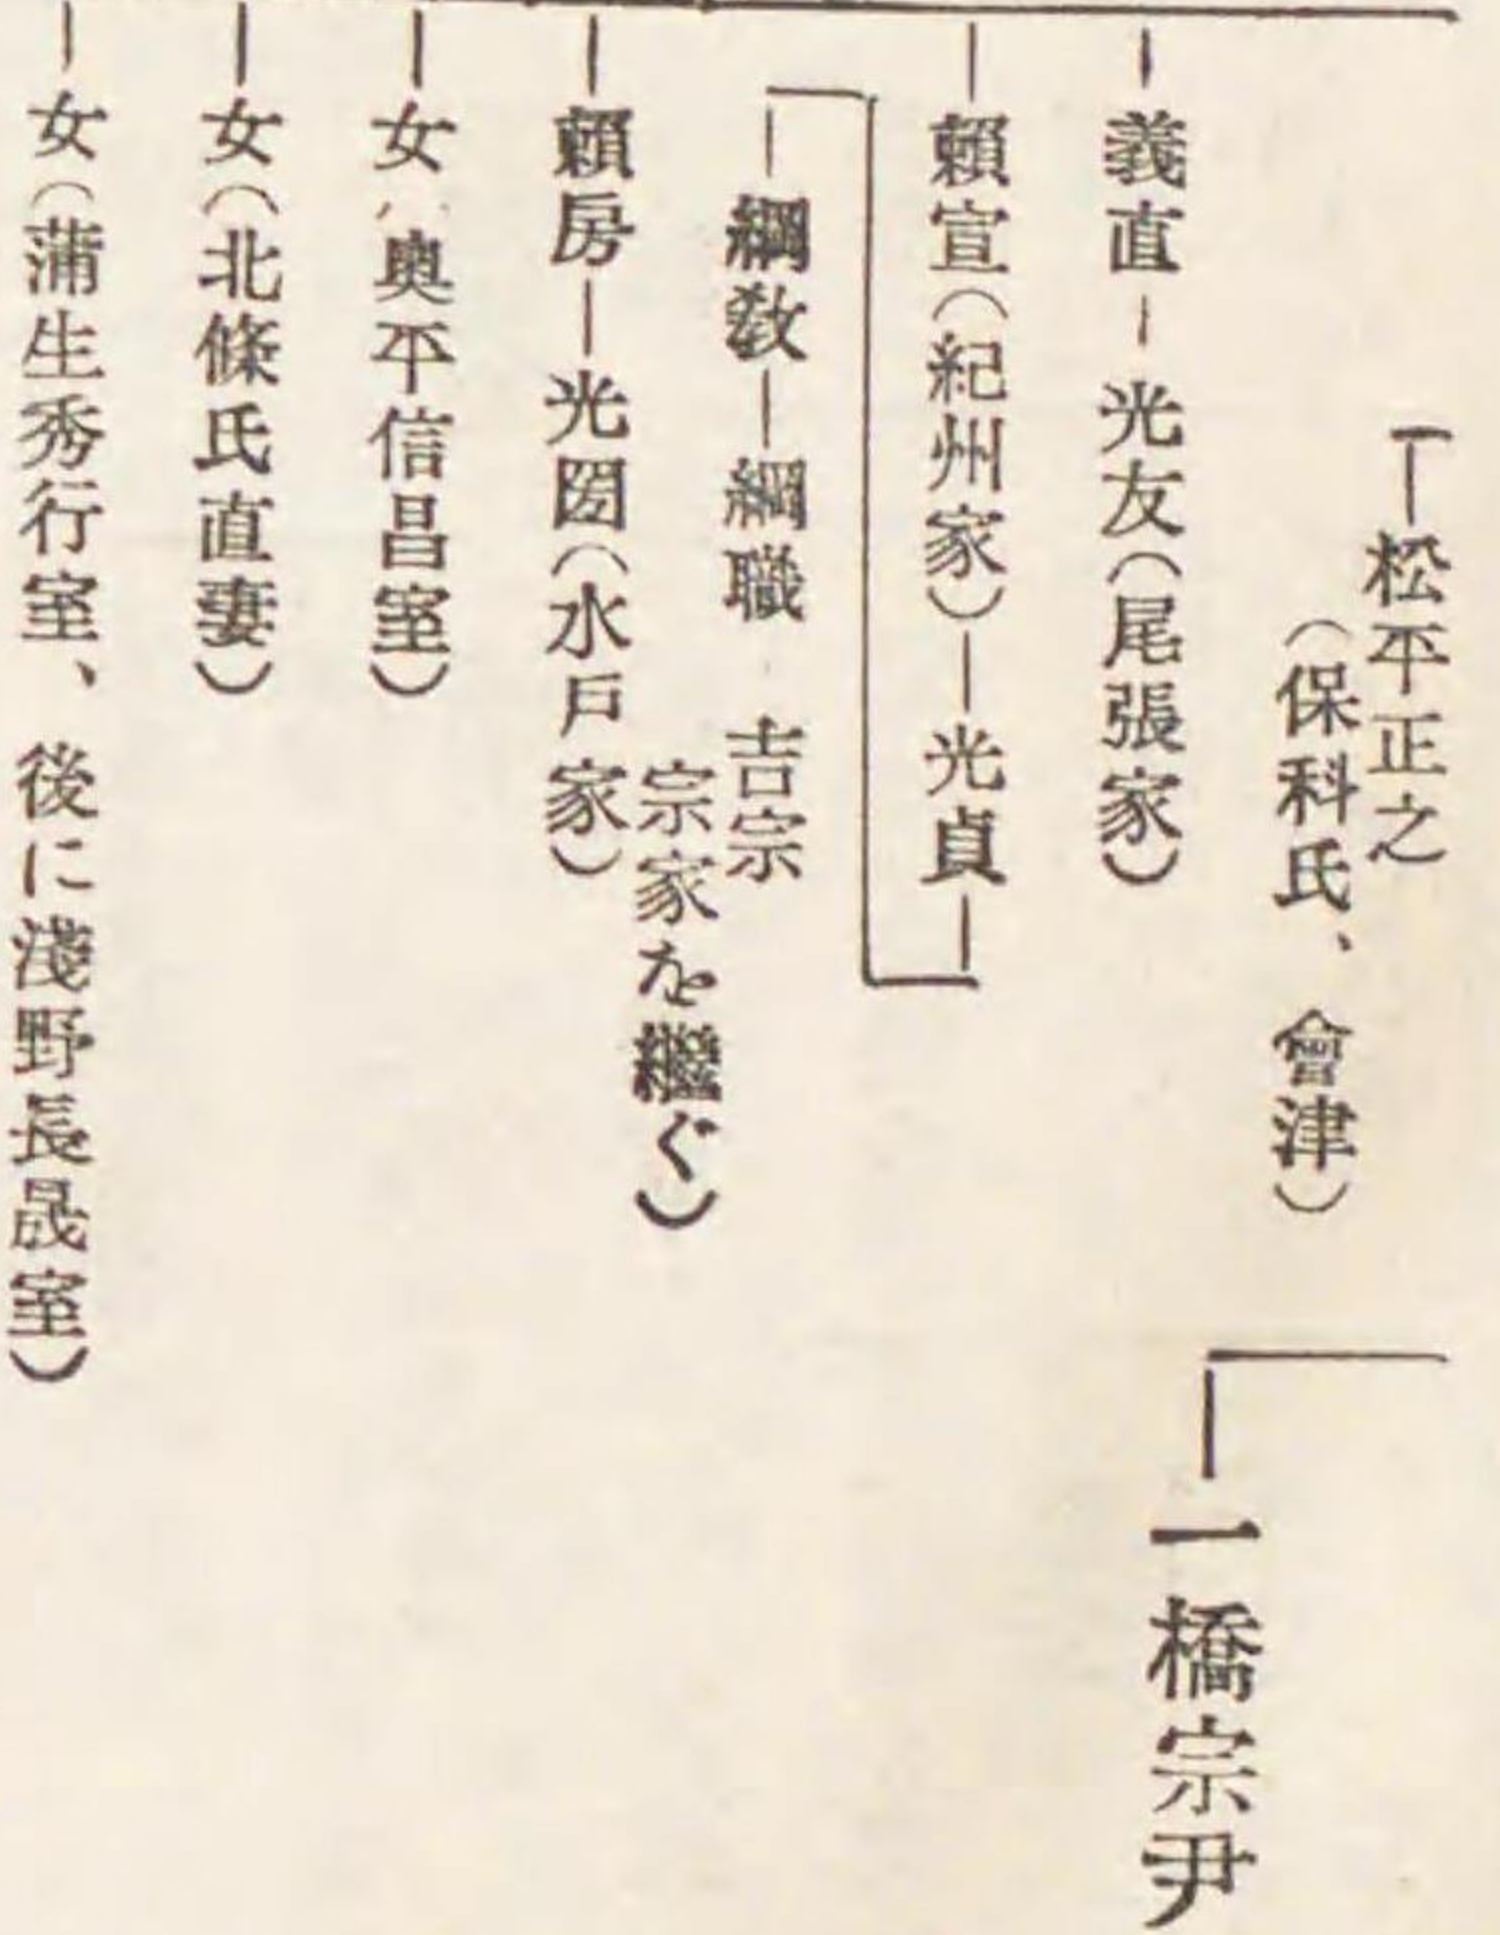 松平正之
（保科氏、會津）
一橋宗尹
義直―光友（尾張家）
賴宣（紀州家）―光貞
綱敎―綱職 吉宗
宗家を繼ぐ）
賴房―光圀（水戶家）
女（奥平信昌室）
女（北條氏直妻）
女（蒲生秀行室、後に淺野長晟室）